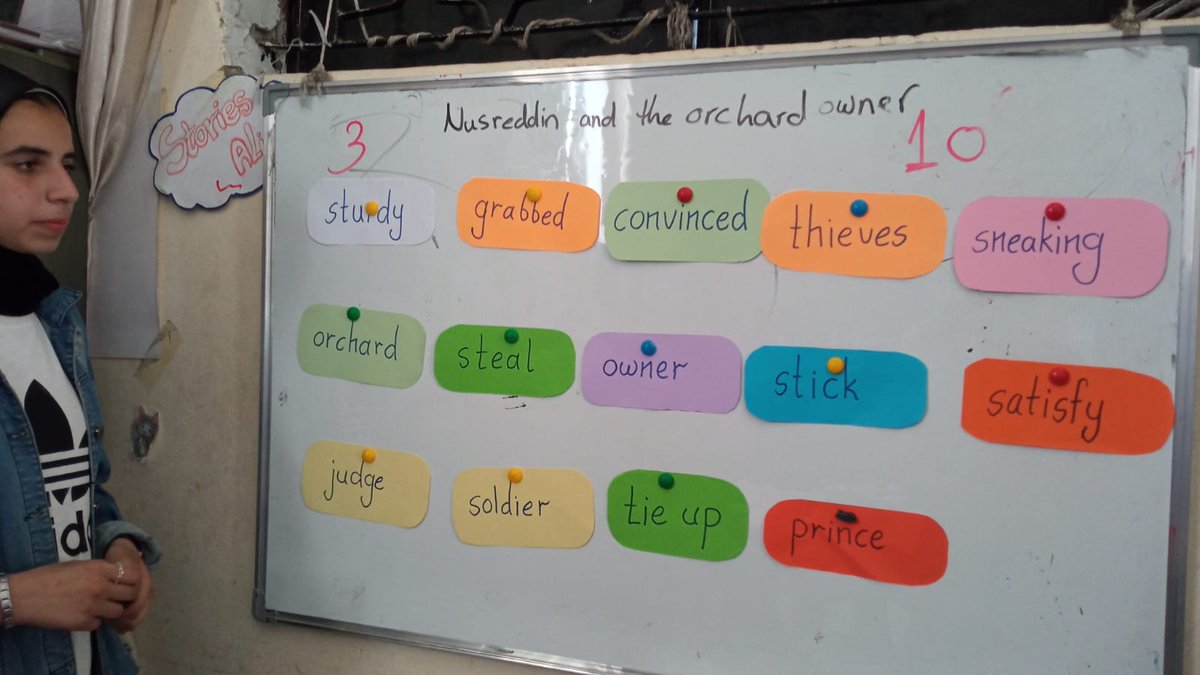 Nusreddin and the orchard owner
3
10
Stories
sturdy
grabbed
convinced
thieves
sneaking
orchard
steal
owner
stick
satisfy
judge
soldier
tie up
prince